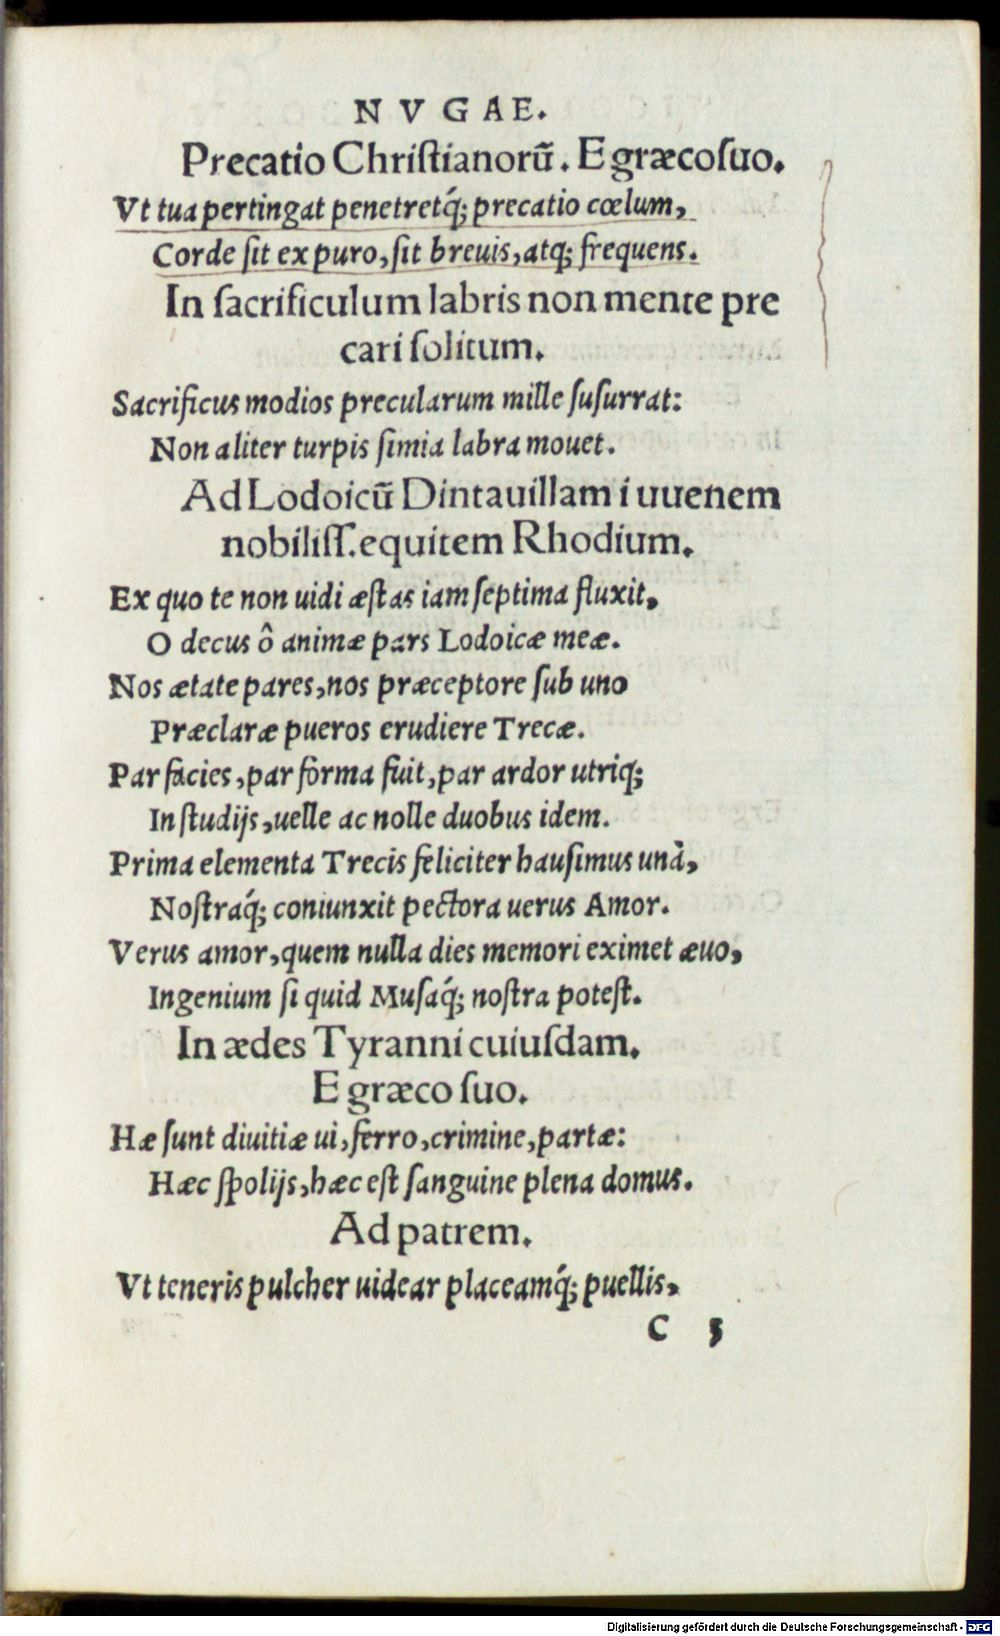 NVGAE.
Precatio Christianorũ. E græco suo.
Vt tua pertingat penetretq́; precatio cœlum,
Corde sit ex puro, sit breuis, atq; frequens.
In sacrificulum labris non mente pre
cari solitum.
Sacrificus modios precularum mille susurrat:
Non aliter turpis simia labra mouet.
Ad Lodoicũ Dintauillam iuuenem
nobiliss. equitem Rhodium.
Ex quo te non uidi æstas iam septima fluxit,
O decus ô animæ pars Lodoicæ meæ.
Nos ætate pares, nos præceptore sub uno
Præclaræ pueros erudiere Trecæ.
Par facies, par forma fuit, par ardor utriq;
In studijs, uelle ac nolle duobus idem.
Prima elementa Trecis feliciter hausimus unà,
Nostraq́; coniunxit pectora uerus Amor.
Verus amor, quem nulla dies memori eximet æuo,
Ingenium si quid Musaq́; nostra potest.
In ædes Tyranni cuiusdam.
E græco suo.
Hæ sunt diuitiæ ui, ferro, crimine, partæ:
Hæc spolijs, hæc est sanguine plena domus.
Ad patrem.
Vt teneris pulcher uidear placeamq́; puellis,
C 5
Digitalisierung gefördert durch die Deutsche Forschungsgemeinschaft - DFG